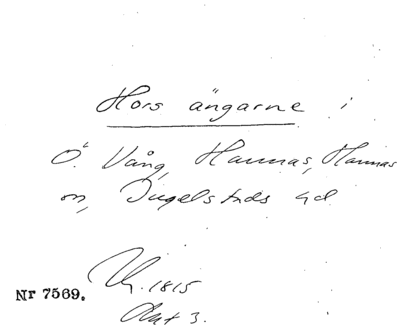 Hors ängarne i
Ö. Vång, Hannas, Hannas
sn, Ingelstads hd
Nr 7569.
1815
Akt 3.